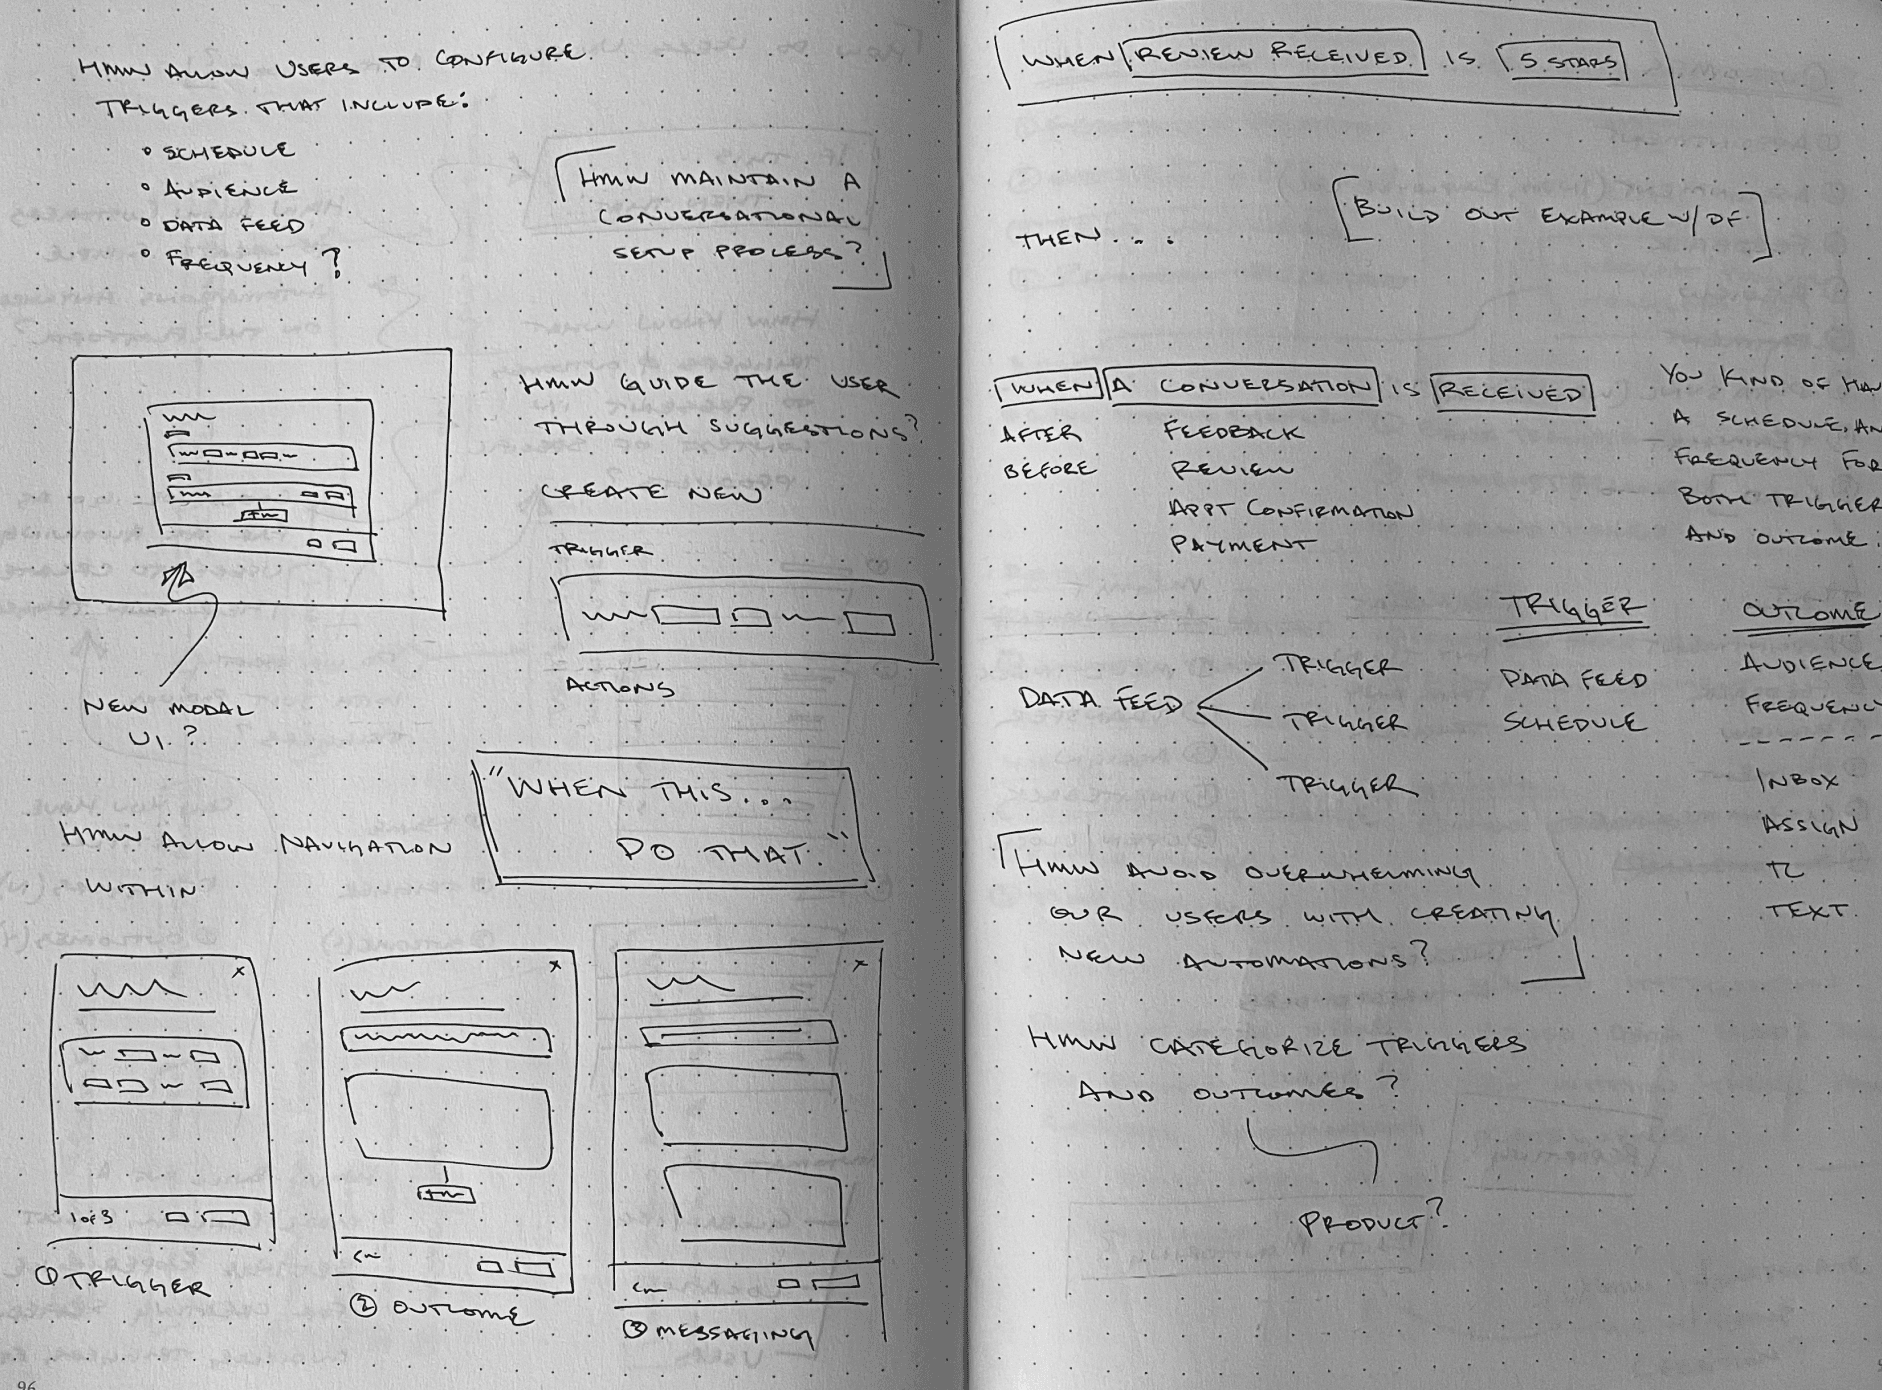 HMW ALLOW USERS TO CONFIGURE
TRIGGERS THAT INCLUDE:
• SCHEDULE
• AUDIENCE
• DATA FEED
• FREQUENCY?
HMW MAINTAIN A
CONVERSATIONAL
SETUP PROCESS?
HMW GUIDE THE USER
THROUGH SUGGESTIONS?
CREATE NEW
TRIGGER
ACTIONS
NEW MODAL
UI?
"WHEN THIS...
DO THAT."
HMW ALLOW NAVIGATION
WITHIN
X
X
X
1 of 3
① TRIGGER
② OUTCOME
③ MESSAGING
96
WHEN REVIEW RECEIVED IS 5 STARS
THEN....
BUILD OUT EXAMPLE W/ DF
WHEN A CONVERSATION IS RECEIVED
AFTER FEEDBACK
BEFORE REVIEW
APPT CONFIRMATION
PAYMENT
YOU KIND OF
A SCHEDULE,
FREQUENCY FOR
BOTH TRIGGER
AND OUTCOME.
DATA FEED
TRIGGER
TRIGGER
TRIGGER
TRIGGER
DATA FEED
SCHEDULE
OUTCOME
AUDIENCE
FREQUENCY
INBOX
ASSIGN
TEXT
HMW AVOID OVERWHELMING
OUR USERS WITH CREATING
NEW AUTOMATIONS?
HMW CATEGORIZE TRIGGERS
AND OUTCOMES?
PRODUCT?